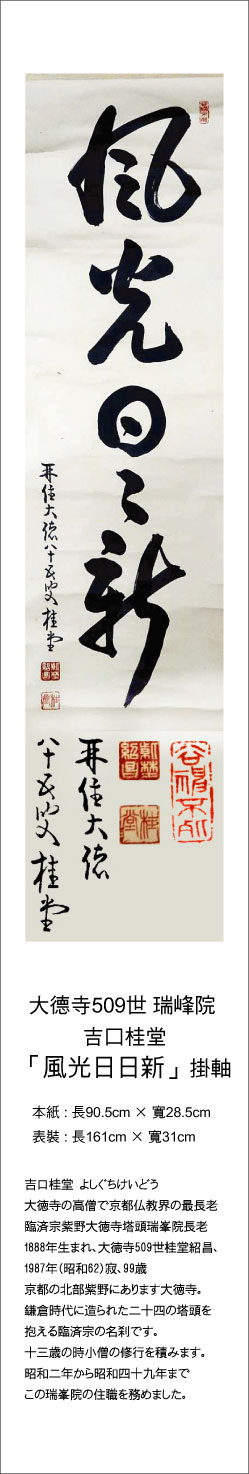 風光日々新
再住大徳八十五叟桂堂
再住大徳
八十五叟桂堂
大徳寺509世 瑞峰院
吉口桂堂
「風光日日新」掛軸
本紙：長90.5cm × 寬28.5cm
表裝：長161cm × 寬31cm
吉口桂堂 よしぐちけいどう
大徳寺の高僧で京都仏教界の最長老
臨済宗紫野大徳寺塔頭瑞峯院長老
1888年生まれ、大徳寺509世桂堂紹昌、
1987年(昭和62)寂、99歳
京都の北部紫野にあります大徳寺。
鎌倉時代に造られた二十四の塔頭を
抱える臨済宗の名刹です。
十三歳の時小僧の修行を積みます。
昭和二年から昭和四十九年まで
この瑞峯院の住職を務めました。